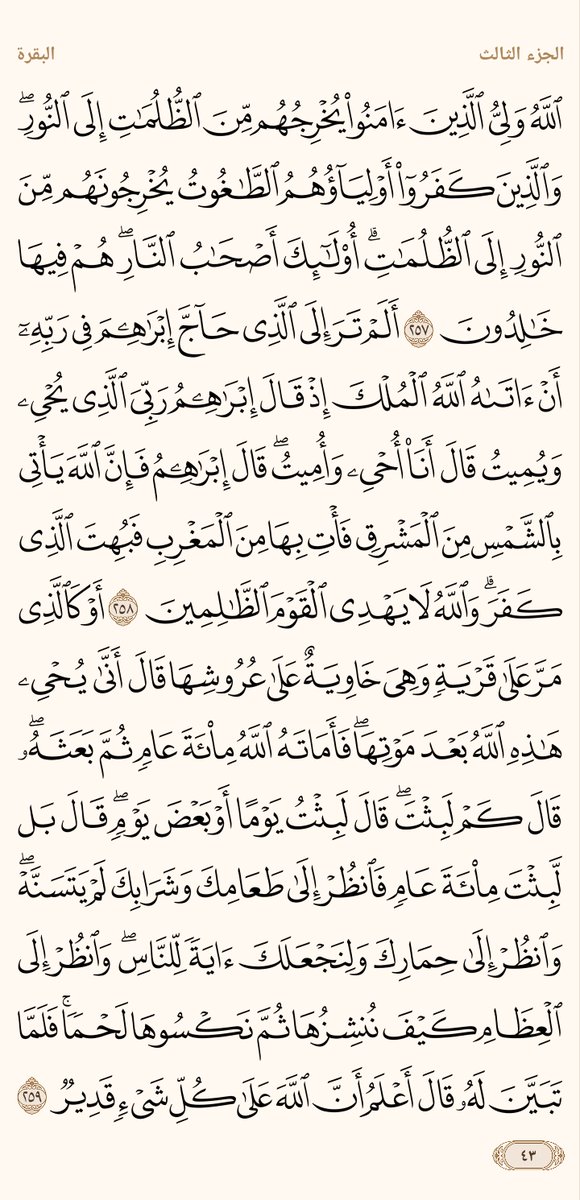 الجزء الثالث
البقرة
ٱللَّهُ وَلِيُّ ٱلَّذِينَ ءَامَنُوا۟ يُخْرِجُهُم مِّنَ ٱلظُّلُمَٰتِ إِلَى ٱلنُّورِ ۖ
وَٱلَّذِينَ كَفَرُوٓا۟ أَوْلِيَآؤُهُمُ ٱلطَّٰغُوتُ يُخْرِجُونَهُم مِّنَ
ٱلنُّورِ إِلَى ٱلظُّلُمَٰتِ ۗ أُو۟لَٰٓئِكَ أَصْحَٰبُ ٱلنَّارِ ۖ هُمْ فِيهَا
خَٰلِدُونَ ٢٥٧ أَلَمْ تَرَ إِلَى ٱلَّذِى حَآجَّ إِبْرَٰهِـۧمَ فِى رَبِّهِۦٓ
أَنْ ءَاتَىٰهُ ٱللَّهُ ٱلْمُلْكَ إِذْ قَالَ إِبْرَٰهِـۧمُ رَبِّىَ ٱلَّذِى يُحْىِۦ
وَيُمِيتُ قَالَ أَنَا۠ أُحْىِۦ وَأُمِيتُ ۖ قَالَ إِبْرَٰهِـۧمُ فَإِنَّ ٱللَّهَ يَأْتِى
بِٱلشَّمْسِ مِنَ ٱلْمَشْرِقِ فَأْتِ بِهَا مِنَ ٱلْمَغْرِبِ فَبُهِتَ ٱلَّذِى
كَفَرَ ۗ وَٱللَّهُ لَا يَهْدِى ٱلْقَوْمَ ٱلظَّٰلِمِينَ ٢٥٨ أَوْ كَٱلَّذِى
مَرَّ عَلَىٰ قَرْيَةٍ وَهِىَ خَاوِيَةٌ عَلَىٰ عُرُوشِهَا قَالَ أَنَّىٰ يُحْىِۦ
هَٰذِهِ ٱللَّهُ بَعْدَ مَوْتِهَا ۖ فَأَمَاتَهُ ٱللَّهُ مِا۟ئَةَ عَامٍ ثُمَّ بَعَثَهُۥ ۖ
قَالَ كَمْ لَبِثْتَ ۖ قَالَ لَبِثْتُ يَوْمًا أَوْ بَعْضَ يَوْمٍ ۖ قَالَ بَل
لَّبِثْتَ مِا۟ئَةَ عَامٍ فَٱنظُرْ إِلَىٰ طَعَامِكَ وَشَرَابِكَ لَمْ يَتَسَنَّهْ ۖ
وَٱنظُرْ إِلَىٰ حِمَارِكَ وَلِنَجْعَلَكَ ءَايَةً لِّلنَّاسِ ۖ وَٱنظُرْ إِلَى
ٱلْعِظَامِ كَيْفَ نُنشِزُهَا ثُمَّ نَكْسُوهَا لَحْمًا ۚ فَلَمَّا
تَبَيَّنَ لَهُۥ قَالَ أَعْلَمُ أَنَّ ٱللَّهَ عَلَىٰ كُلِّ شَىْءٍ قَدِيرٌ ٢٥٩
٤٣